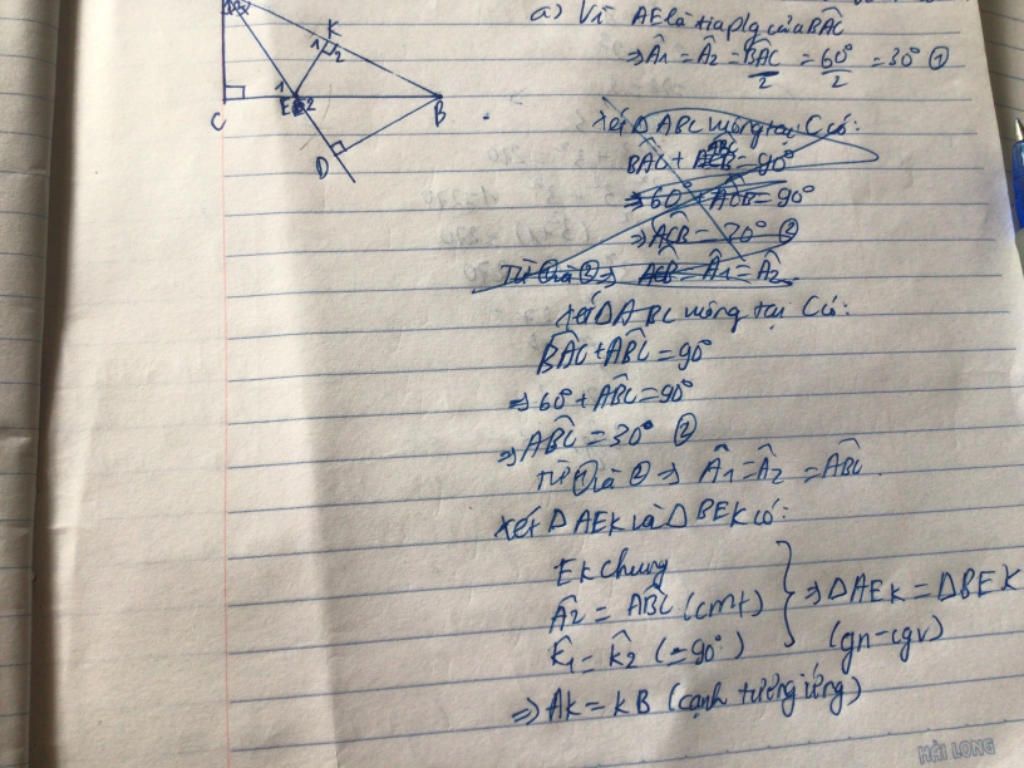 a) Vì AE là tia p/g của BÂC
⇒ Â1 = Â2 = BÂC/2 = 60°/2 = 30° ①
K
1 2
1
E 2
C
B
D
xét Δ ABC vuông tại C có:
BAC + ABC = 90°
⇒ 60° + ACB = 90°
⇒ ACB = 30° ②
Từ ① và ② ⇒ ACB = Â1 = Â2
xét Δ ABC vuông tại C có:
BÂC + AB̂C = 90°
⇒ 60° + AB̂C = 90°
⇒ AB̂C = 30° ②
Từ ① và ② ⇒ Â1 = Â2 = AB̂C.
xét Δ AEK và Δ BEK có:
EK chung
Â2 = AB̂C (cmt)
K̂1 = K̂2 (= 90°)
} ⇒ Δ AEK = Δ BEK
(gn-cgv)
⇒ AK = KB (cạnh tương ứng)
HẢI LONG